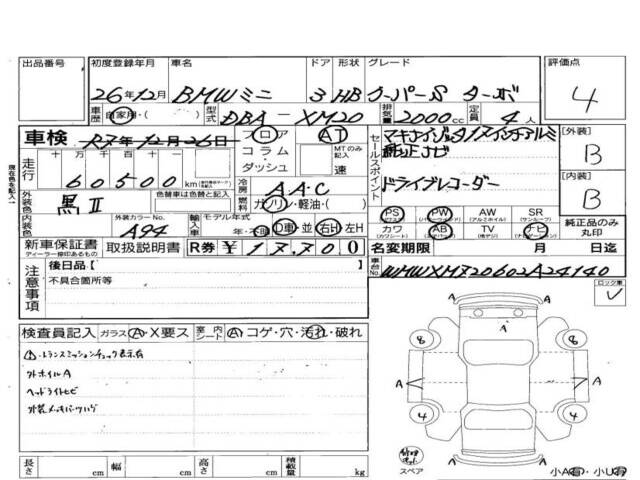 出品番号 初度登録年月 車名 ドア 形状 グレード 評価点
26年12月 BMWミニ 3 HB クーパーS ターボ 4
車歴 自家用・( ) 型式 DBA-XM20 排気量 2000cc 定員 4人
車検 R7年12月26日 フロア AT
コラム・ MTのみ記入
ダッシュ 速
走行 十 万 千 百 十 一
60500 km
冷房 AAC
外装色 黒Ⅱ 色替車は色替と記入 燃料 ガソリン・軽油・( )
内装色 外装カラーNo. A94 輸入車 モデル年式 年・ D車・並 右H・左H
新車保証書 取扱説明書 R券 ¥
ディーラー捺印あるもの
セールスポイント
純正ナビ
ドライブレコーダー
PS PW AW SR
(アルミホイル) (サンルーフ)
カワ AB TV ナビ
(カワシート) (エアバッグ) (ナビゲーション)
純正品のみ丸印
名変期限 月 日迄
車台No. WMWXM720602A24140
[外装] B
[内装] B
現在色を記入
注意事項 後日品【
不具合箇所等
ロック車
検査員記入 ガラス A・X要ス 室内シート A・コゲ・穴・汚れ・破れ
・トランスミッションチェック表示有
外ホイルA
ヘッドライトヒビ
A
8 8
A A
4 4
A
スペア
小A有・小U有
長さ cm 幅 cm 高さ cm 積載量 kg